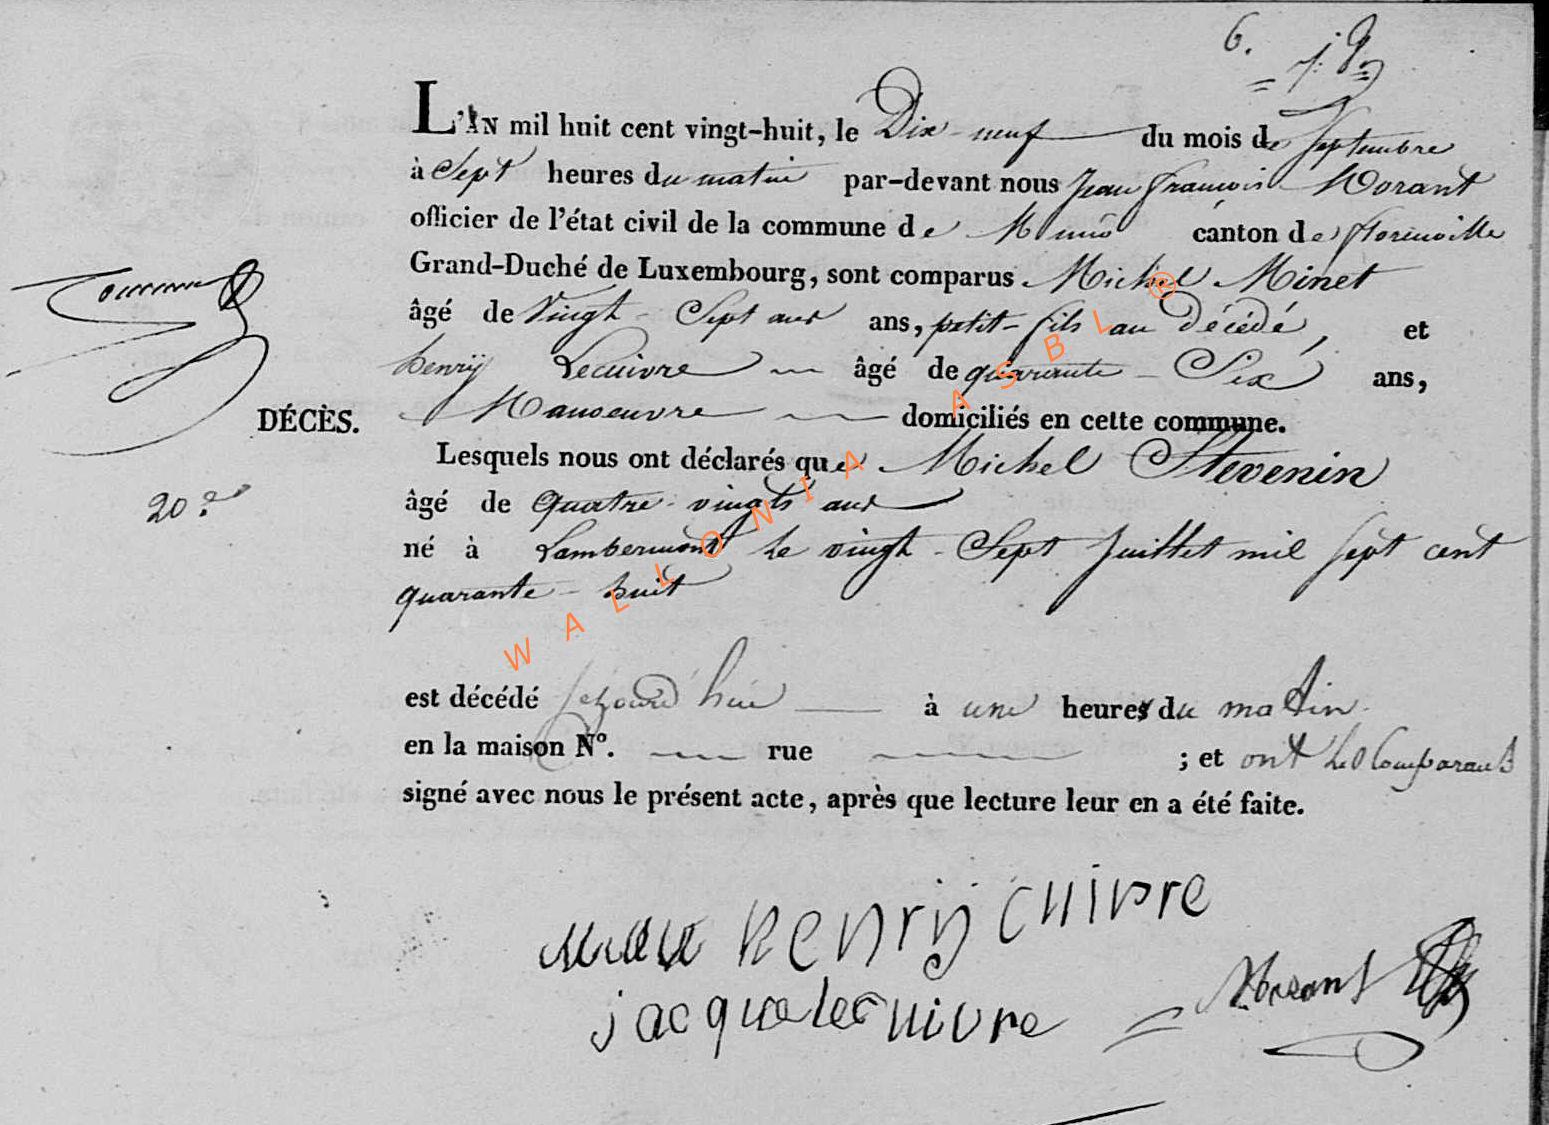 6.
L'AN mil huit cent vingt-huit, le Dix-neuf du mois de Septembre
à Sept heures du matin par-devant nous Jean françois Morant
officier de l'état civil de la commune de Muno canton de florenville
Grand-Duché de Luxembourg, sont comparus Michel Minet
âgé de Vingt-Sept ans ans, petit-fils au décédé, et
henrÿ Lecuivre âgé de quarante-Six ans,
DÉCÈS.
Manoeuvre domiciliés en cette commune.
Lesquels nous ont déclarés que Michel Stevenin
20.e
âgé de quatre-vingts ans
né à Lambermont le vingt-Sept Juillet mil sept cent
quarante-huit
est décédé à une heures du matin
en la maison N°. rue ; et ont les Comparants
signé avec nous le présent acte, après que lecture leur en a été faite.
henrÿ Cuivre
jacque lecuivre Morant
WALLONIA ASBL ®